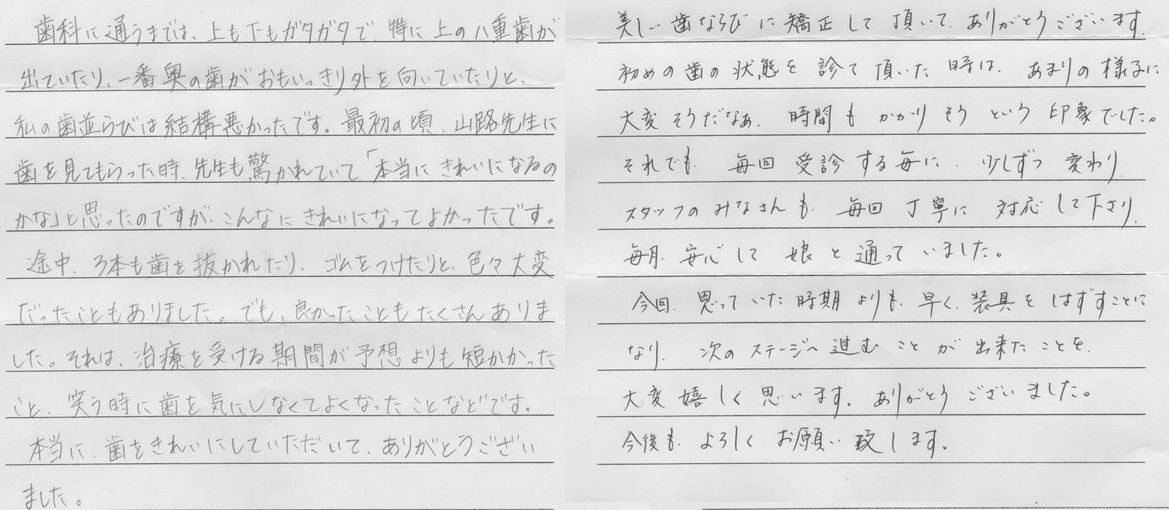 歯科に通うまでは、上も下もガタガタで、特に上の八重歯が
出ていたり、一番奥の歯がおもいっきり外を向いていたりと、
私の歯並らびは結構悪かったです。最初の頃、山路先生に
歯を見てもらった時、先生も驚かれていて「本当にきれいになるの
かな」と思ったのですが、こんなにきれいになってよかったです。
途中、3本も歯を抜かれたり、ゴムをつけたりと、色々大変
だったこともありました。でも、良かったこともたくさんありま
した。それは、治療を受ける期間が予想よりも短かかった
こと、笑う時に歯を気にしなくてよくなったことなどです。
本当に、歯をきれいにしていただいて、ありがとうござい
ました。
美しい歯ならびに矯正して頂いて、ありがとうございます。
初めの歯の状態を診て頂いた時は、あまりの様子に
大変そうだなぁ、時間もかかりそうという印象でした。
それでも、毎回受診する毎に、少しずつ変わり、
スタッフのみなさんも、毎回丁寧に対応して下さり、
毎月、安心して娘と通っていました。
今回、思っていた時期よりも、早く、装具をはずすことに
なり、次のステージへ進むことが出来たことを、
大変嬉しく思います。ありがとうございました。
今後も、よろしくお願い致します。